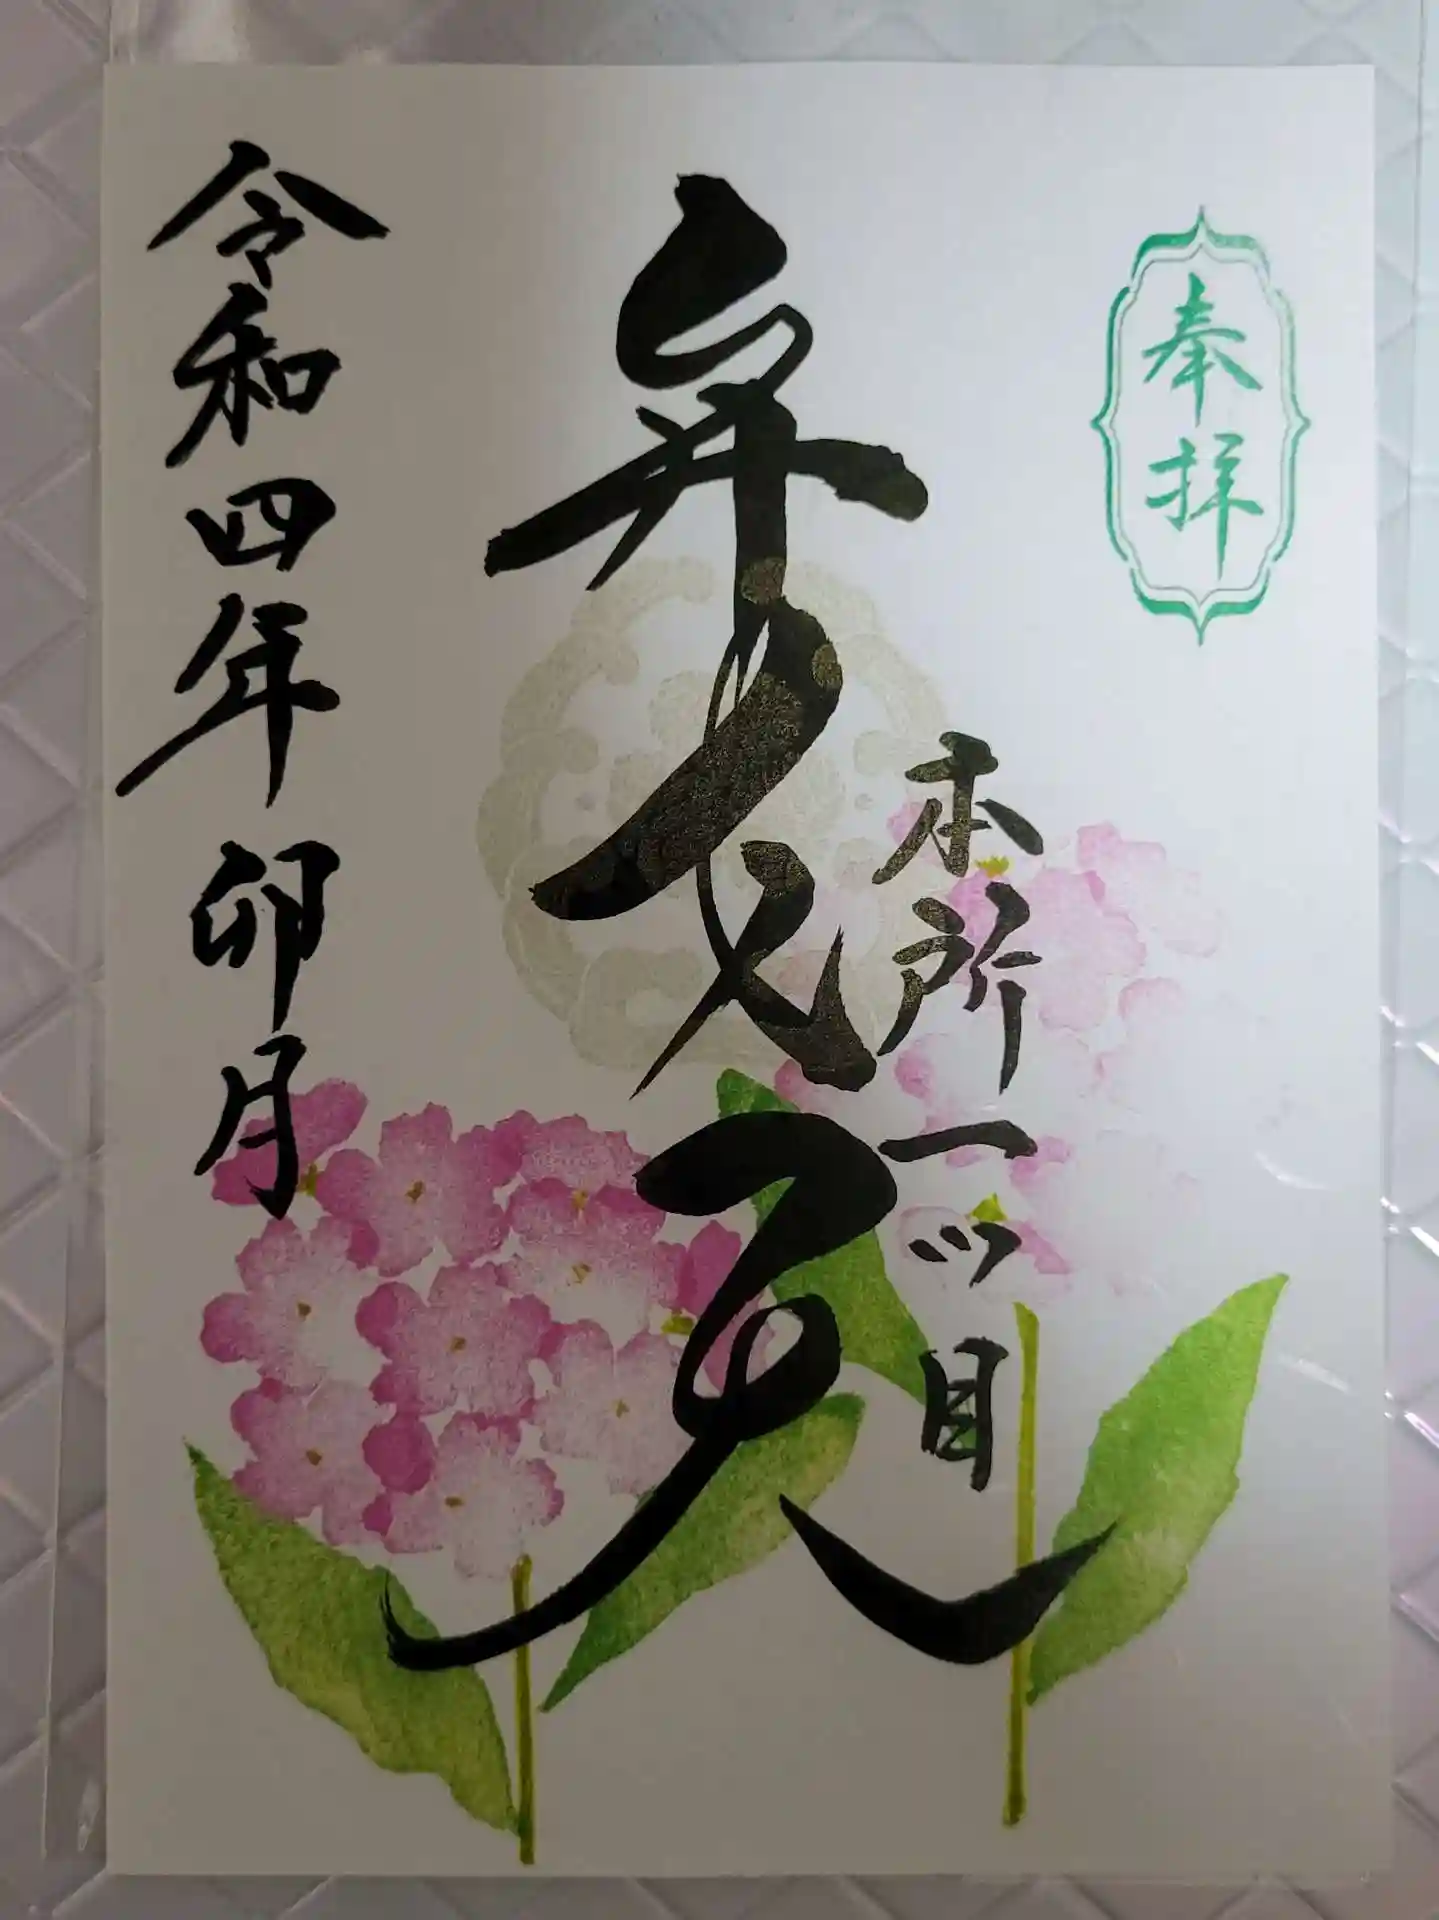 奉拝
本所一ッ目
弁才天
令和四年卯月